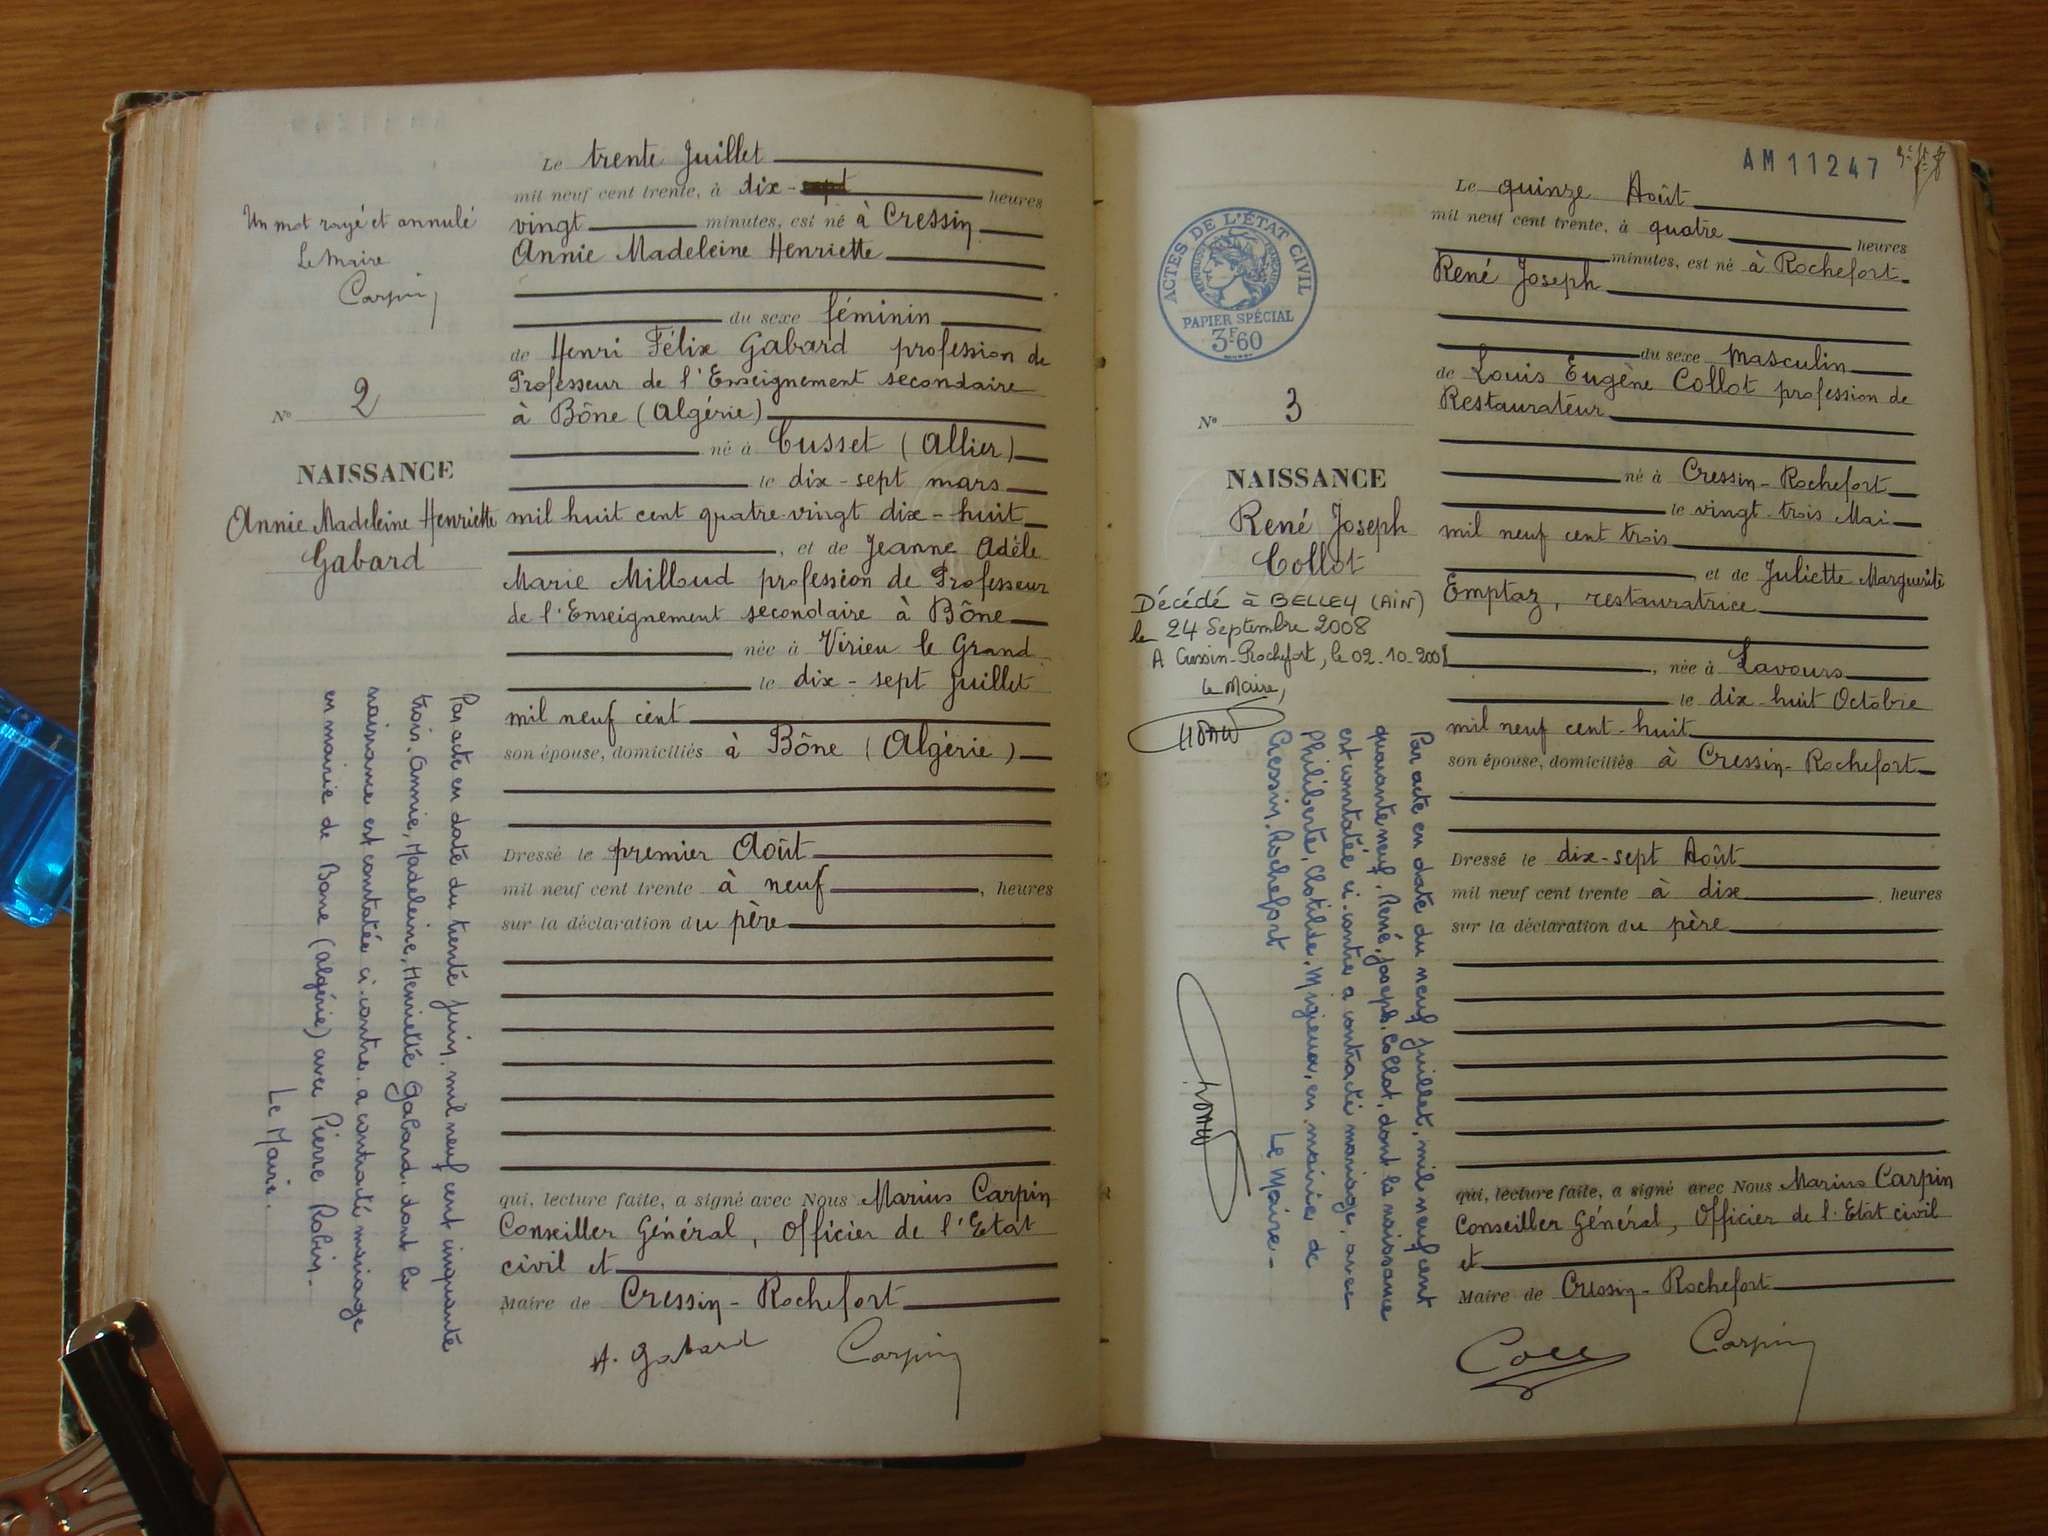 Le trente Juillet
mil neuf cent trente, à dix- heures
vingt minutes, est né à Cressin
Annie Madeleine Henriette
du sexe féminin
de Henri Félix Gabard profession de
Professeur de l'Enseignement secondaire
à Bône (Algérie)
né à Cusset (Allier)
le dix-sept mars
mil huit cent quatre-vingt dix-huit
, et de Jeanne Adèle
Marie Milloud profession de Professeur
de l'Enseignement secondaire à Bône
, née à Virieu le Grand
le dix-sept Juillet
mil neuf cent
son épouse, domiciliés à Bône (Algérie)
Dressé le premier Août
mil neuf cent trente à neuf , heures
sur la déclaration du père
qui, lecture faite, a signé avec Nous Marius Carpin
Conseiller Général, Officier de l'Etat
civil et
Maire de Cressin-Rochefort
H. Gabard Carpin
Un mot rayé et annulé
Le Maire
Carpin
N° 2
NAISSANCE
Annie Madeleine Henriette
Gabard
Par acte en date du trente juin, mil neuf cent cinquante
trois, Annie, Madeleine, Henriette Gabard, dont la
naissance est constatée ci-contre, a contracté mariage
en mairie de Bone (Algérie) avec Pierre Robin.-
Le Maire.
AM 11247
Le quinze Août
mil neuf cent trente, à quatre heures
minutes, est né à Rochefort
René Joseph
du sexe masculin
de Louis Eugène Collot profession de
Restaurateur
né à Cressin-Rochefort
le vingt-trois Mai
mil neuf cent trois
, et de Juliette Marguerite
Emptaz, restauratrice
, née à Lavours
le dix-huit Octobre
mil neuf cent-huit
son épouse, domiciliés à Cressin-Rochefort
Dressé le dix-sept Août
mil neuf cent trente à dix , heures
sur la déclaration du père
qui, lecture faite, a signé avec Nous Marius Carpin
Conseiller Général, Officier de l'Etat civil
et
Maire de Cressin-Rochefort
Carpin
ACTES DE L'ÉTAT CIVIL
PAPIER SPÉCIAL
3F60
N° 3
NAISSANCE
René Joseph
Collot
Décédé à BELLEY (AIN)
le 24 Septembre 2008
A Cressin-Rochefort, le 02.10.2008
Le Maire,
Par acte en date du neuf juillet, mil neuf cent
quarante neuf, René, Joseph, Collot, dont la naissance
est constatée ci-contre a contracté mariage, avec
Philiberte, Clotilde, Migieux, en mairie de
Cressin-Rochefort Le Maire.-